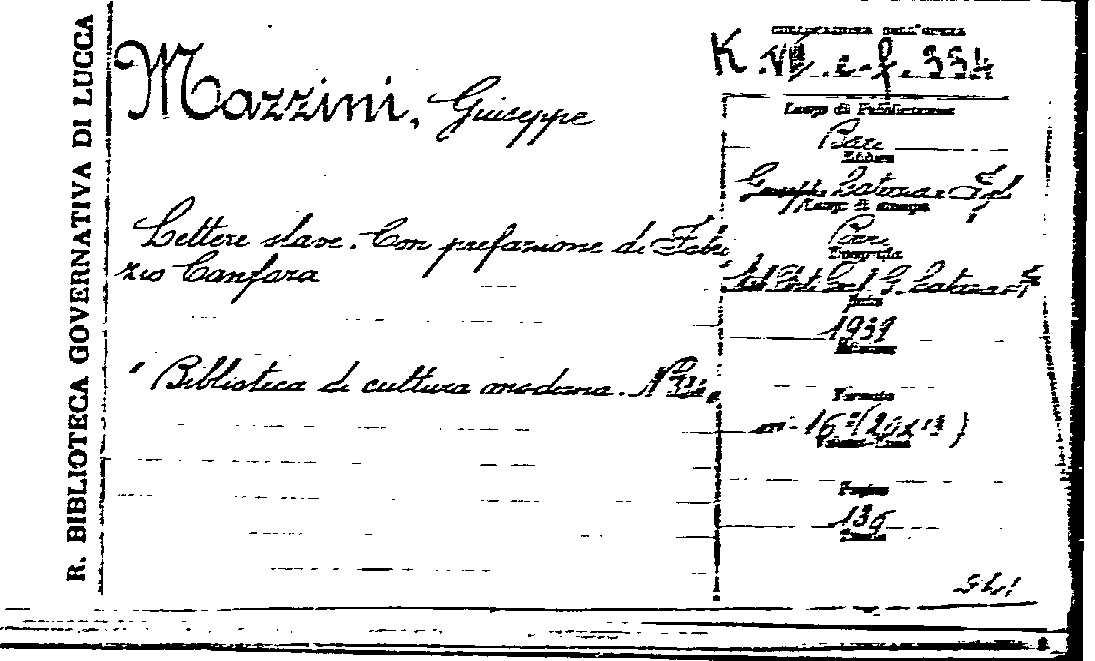 R. BIBLIOTECA GOVERNATIVA DI LUCCA
COLLOCAZIONE DELL'OPERA
K.VII.e-f.334
Mazzini, Giuseppe
Lettere slave. Con prefazione di Fabri
zio Canfora
" Biblioteca di cultura moderna. N°
Luogo di Pubblicazione
Bari
Editore
Laterza e Figli
Luogo di stampa
Bari
Tipografia
G. Laterza e F
Data
1939
Edizione
Formato
in-16° (20x13)
Pagine
136